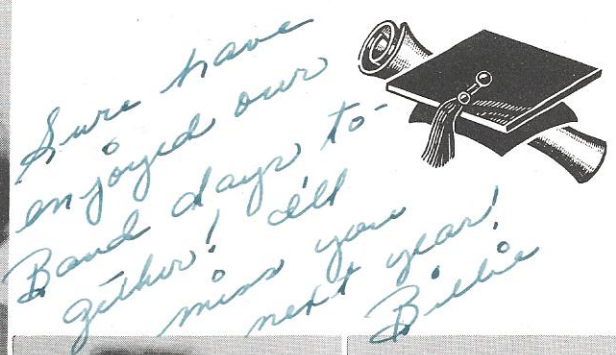 Sure have
enjoyed our
Band days to-
gether! I'll
miss you
next year!
Billie